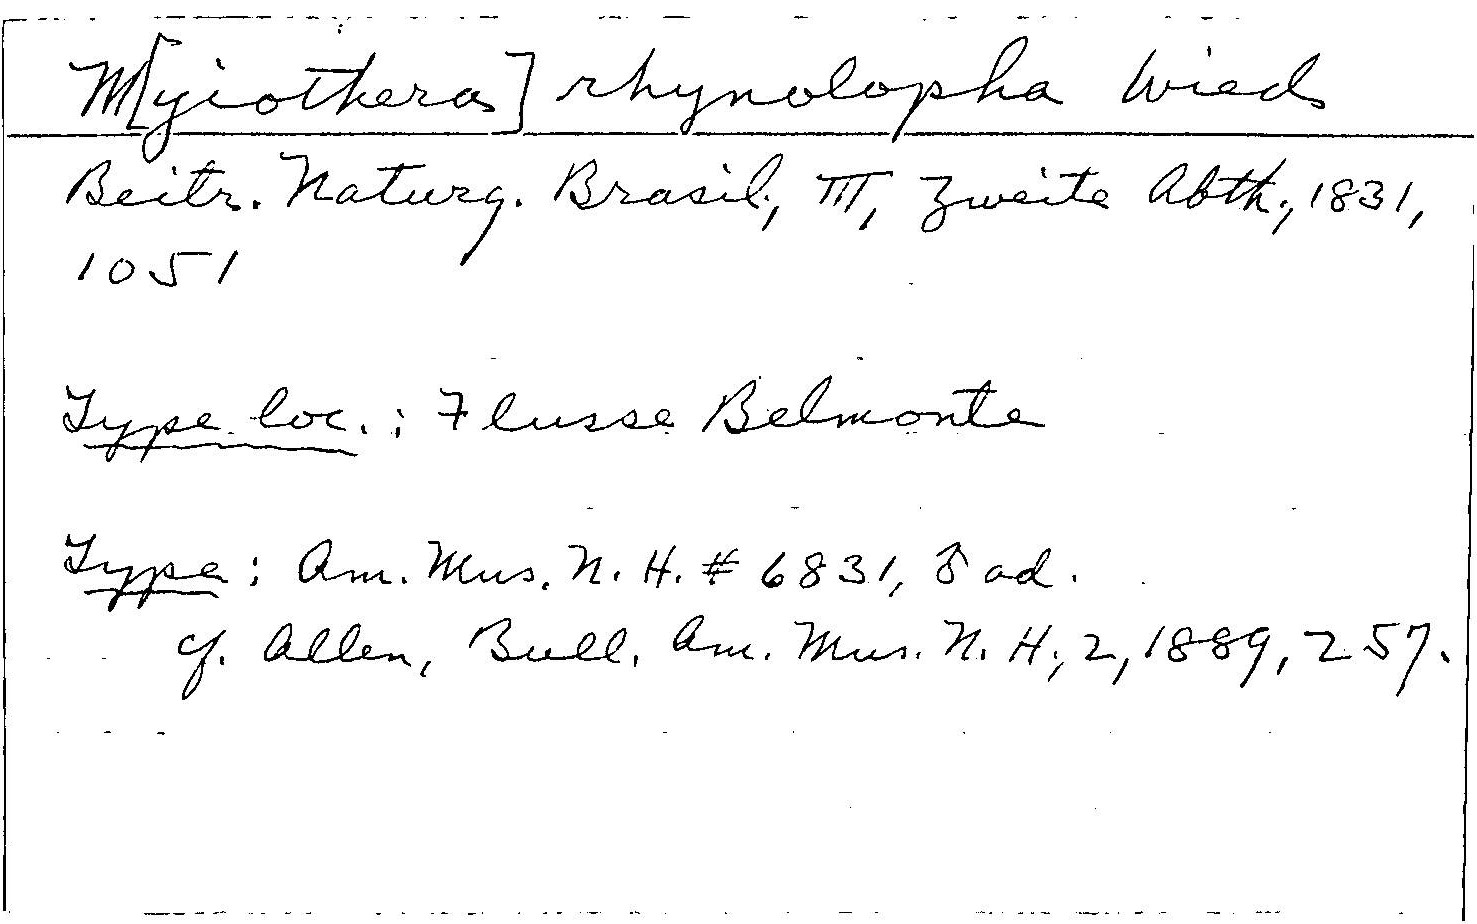 M[yiothera] rhynolopha Wied
Beitr. Naturg. Brasil, III, Zweite Abth., 1831,
1051
Type loc.: Flusse Belmonte
Type: Am. Mus. N. H. # 6831, ♂ ad.
cf. Allen, Bull. Am. Mus. N. H., 2, 1889, 257.